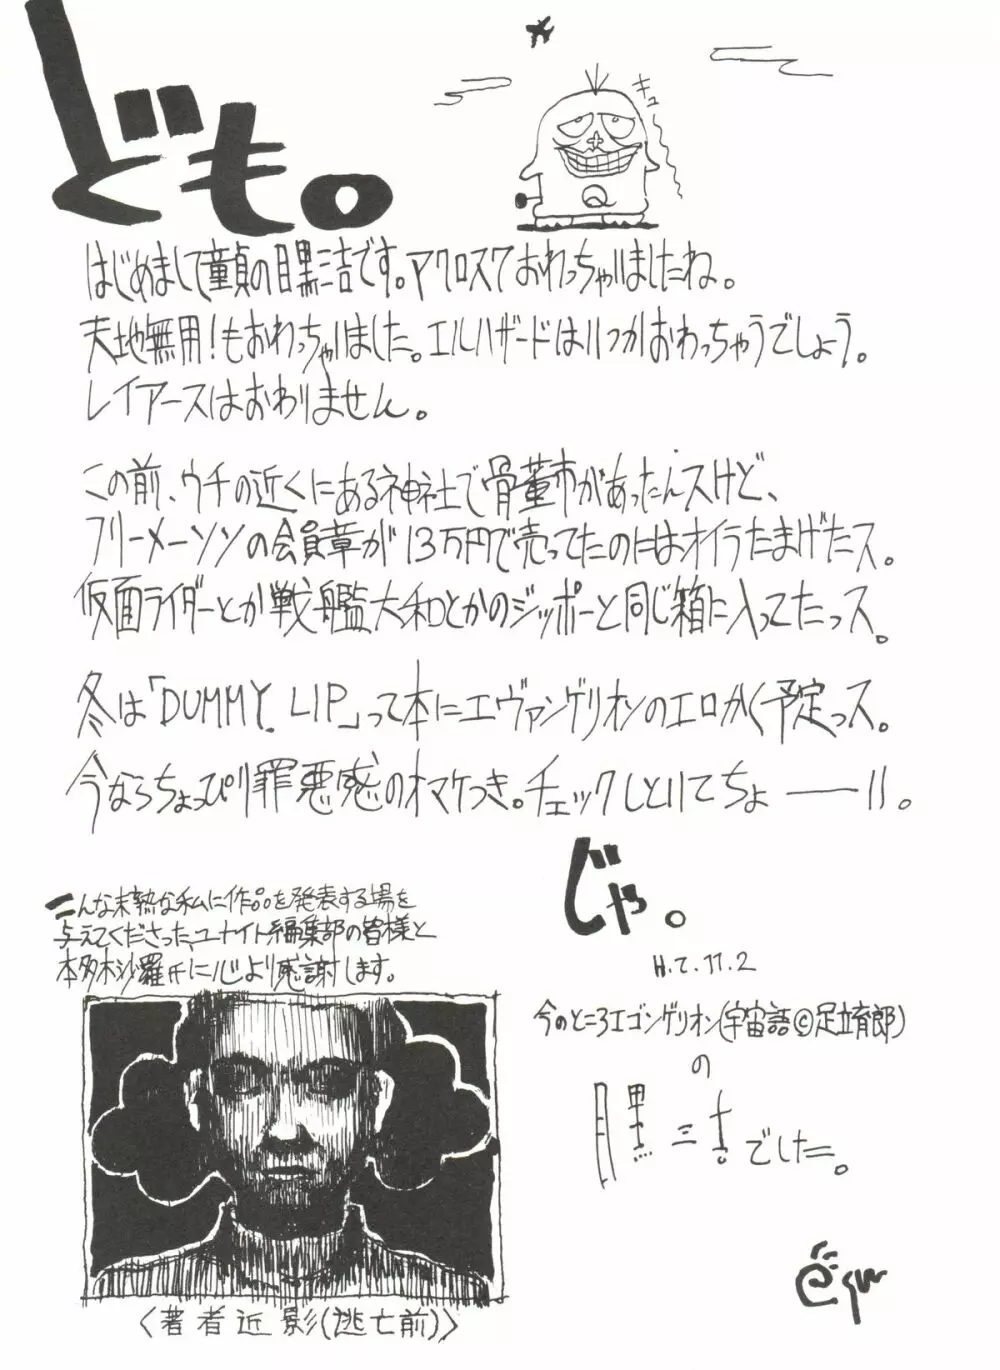 ども。
キュ
Q
はじめまして童貞の目黒三吉です。マクロス7おわっちゃいましたね。
天地無用!もおわっちゃいました。エルハザードはいつかおわっちゃうでしょう。
レイアースはおわりません。
この前、ウチの近くにある神社で骨董市があったんスけど、
フリーメーソンの会員章が13万円で売ってたのにはオイラたまげたス。
仮面ライダーとか戦艦大和とかのジッポーと同じ箱に入ってたっス。
冬は「DUMMY LIP」って本にエヴァンゲリオンのエロかく予定っス。
今ならちょっぴり罪悪感のオマケつき。チェックしといてちょーーい。
じゃ。
H.7.11.2
こんな未熟な私に作品を発表する場を
与えてくださった、ユナイト編集部の皆様と
本多木沙羅氏に心より感謝します。
今のところエゴンゲリオン(宇宙語©足立育郎)
の
目黒三吉でした。
〈著者近影(逃亡前)〉